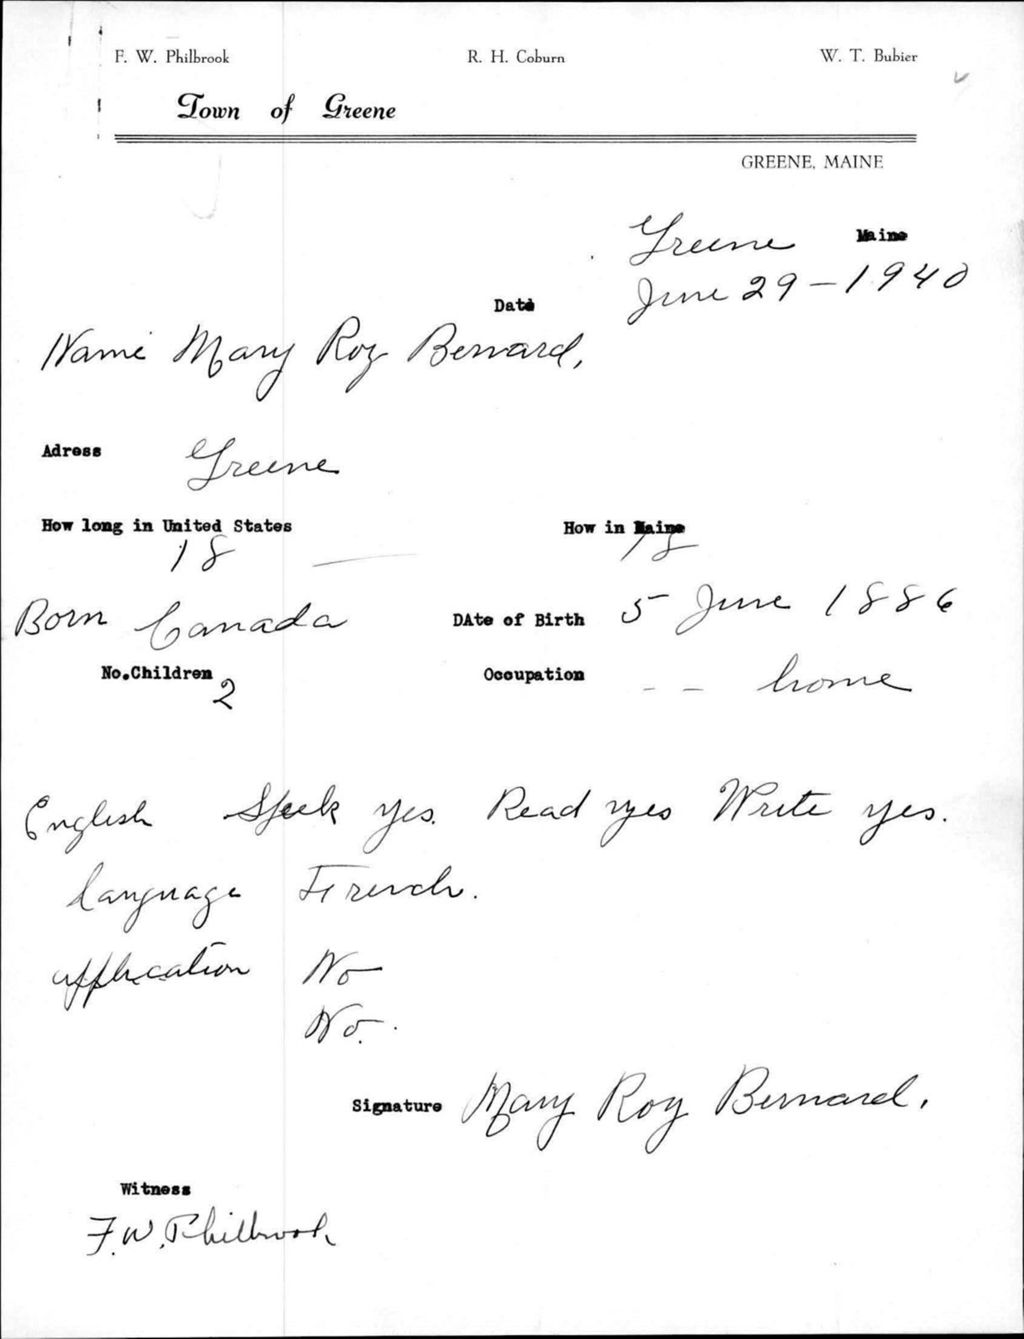 F. W. Philbrook R. H. Coburn W. T. Bubier
Town of Greene
GREENE, MAINE
Greene Maine
Date June 29 - 1940
Name Mary Roy Bernard,
Adress Greene
How long in United States How in Maine
18 18
Born Canada DAte of Birth 5 June 1886
No.Children 2 Occupation - - home
English Speek yes. Read yes Write yes.
language French.
application No
No.
Signature Mary Roy Bernard.
Witness
F.W. Philbrook